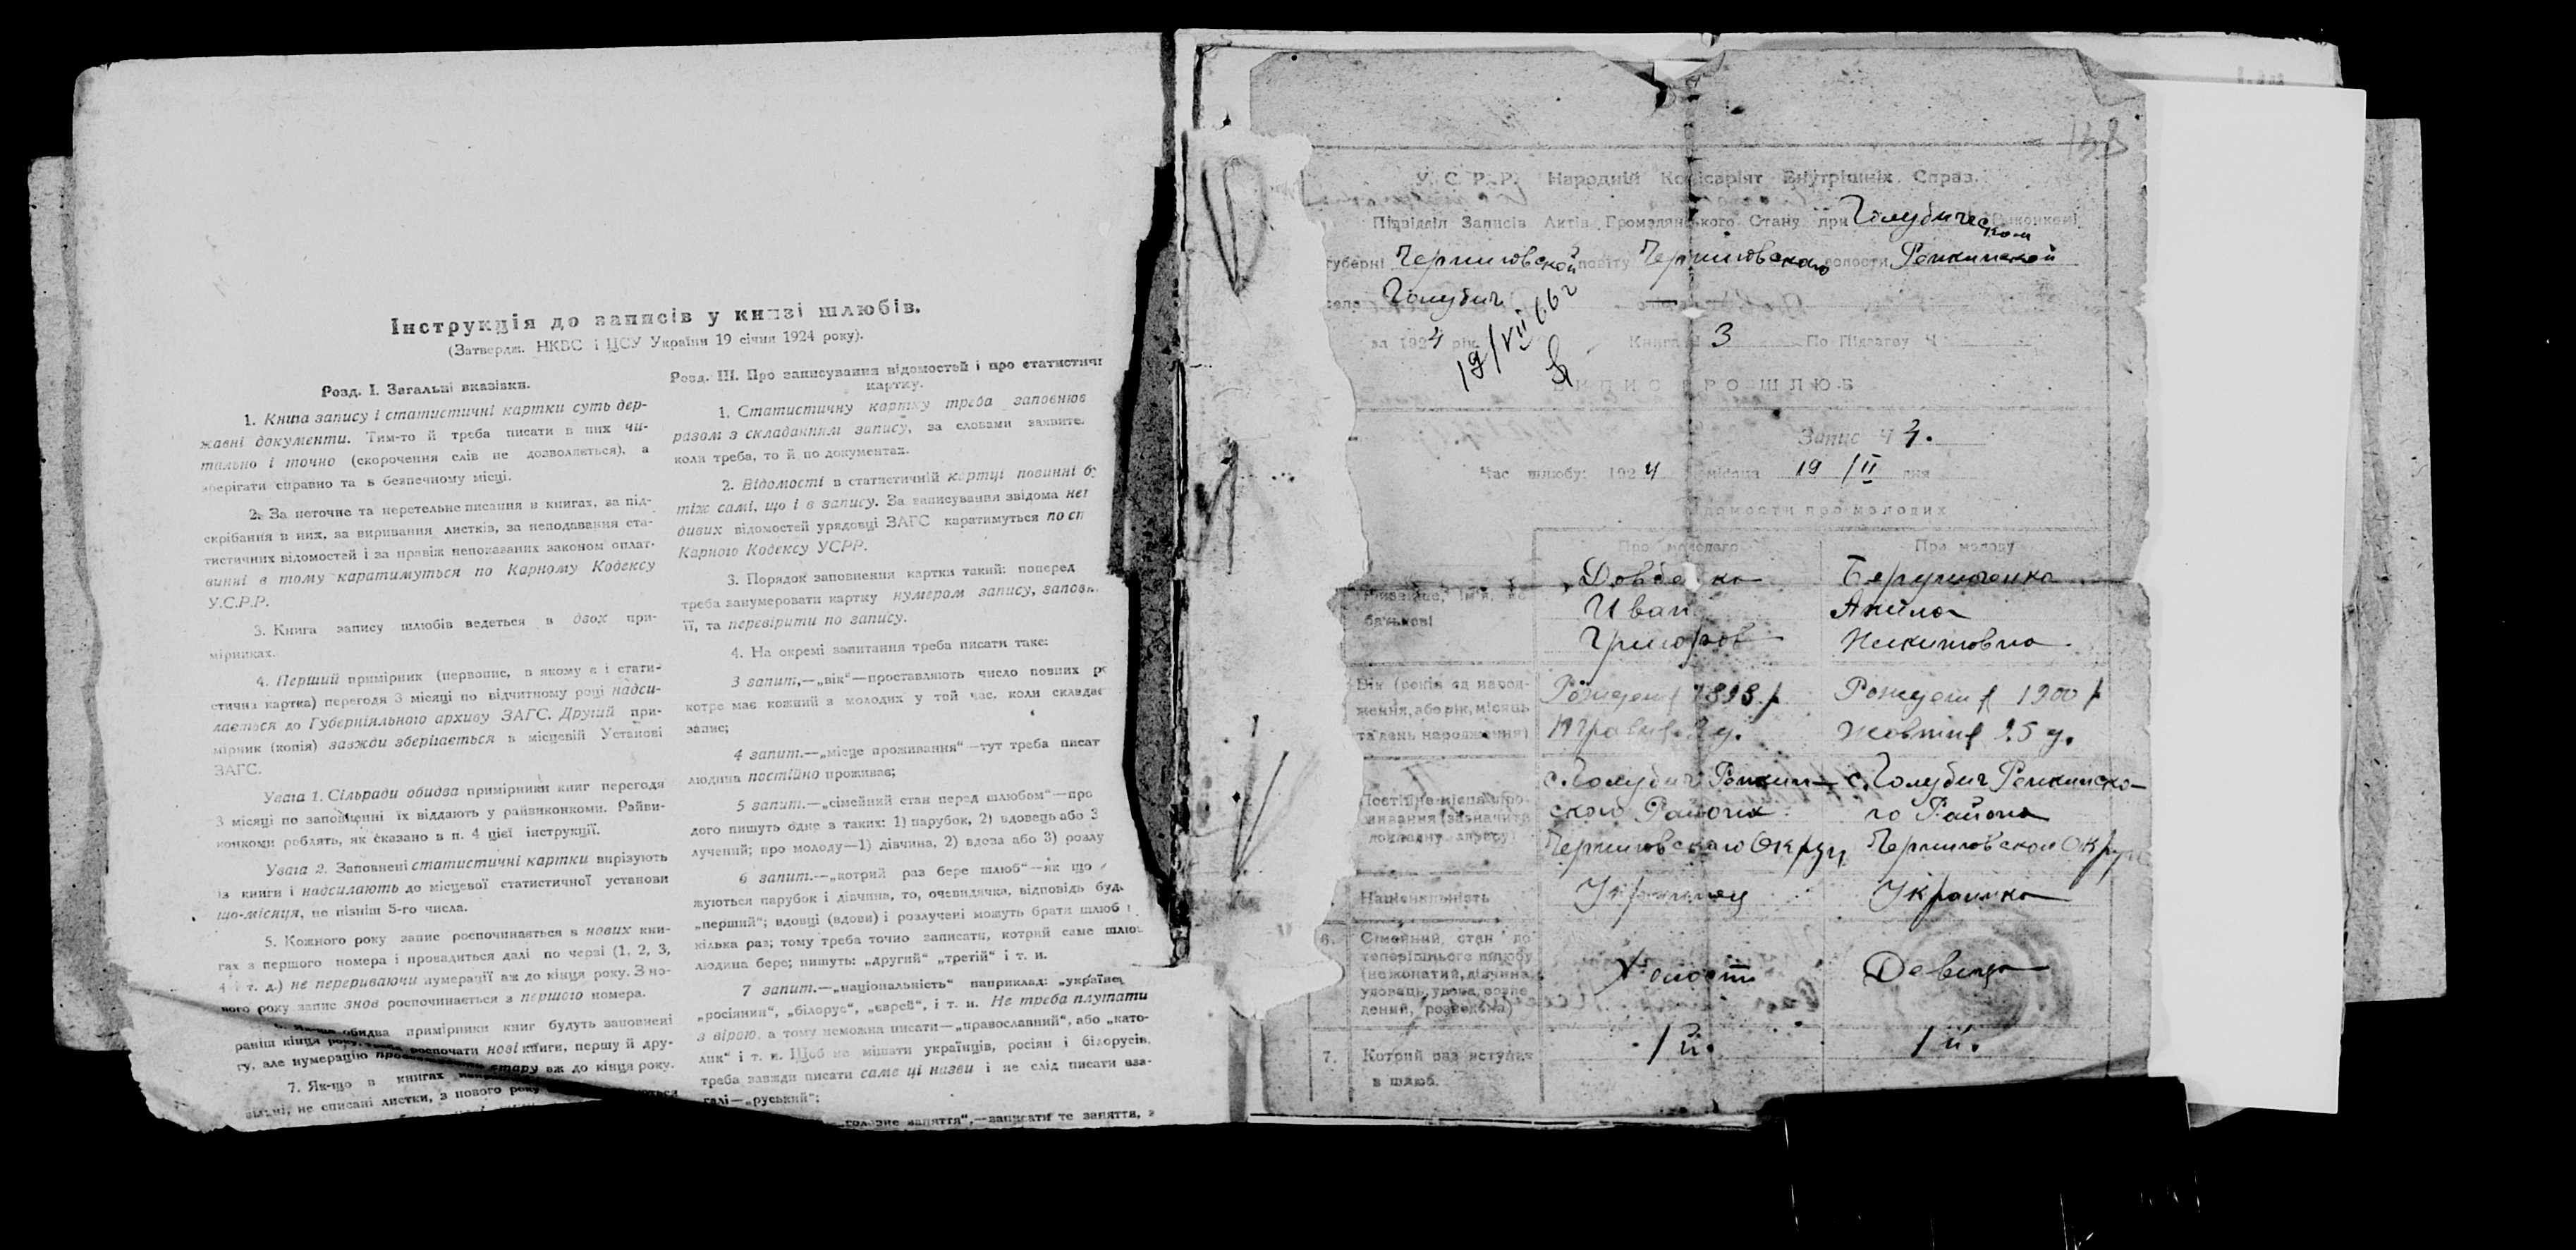 Інструкція до записів у книзі шлюбів.
(Затвердж. НКВС і ЦСУ України 19 січня 1924 року).
Розд. I. Загальні вказівки.
1. Книга запису і статистичні картки суть дер-
жавні документи. Тим-то й треба писати в них чи-
тально і точно (скорочення слів не дозволяється), а
зберігати справно та в безпечному місці.
2. За неточне та неретельне писання в книгах, за під-
скрібання в них, за виривання листків, за неподавання ста-
тистичних відомостей і за правіж непоказаних законом оплат-
винні в тому каратимуться по Карному Кодексу
У.С.Р.Р.
3. Книга запису шлюбів ведеться в двох при-
мірниках.
4. Перший примірник (первопис, в якому є і стати-
стична картка) перегодя 3 місяці по відчитному році надси-
лається до Губерніяльного архиву ЗАГС. Другий при-
мірник (копія) завжди зберігається в місцевій Установі
ЗАГС.
Увага 1. Сільради обидва примірники книг перегодя
3 місяці по заповненні їх віддають у райвиконкоми. Райви-
конкоми роблять, як сказано в п. 4 цієї інструкції.
Увага 2. Заповнені статистичні картки вирізують
із книги і надсилають до місцевої статистичної установи
що-місяця, не пізніш 5-го числа.
5. Кожного року запис роспочинається в нових кни-
гах з першого номера і провадиться далі по черзі (1, 2, 3,
4 і т. д.) не перериваючи нумерації аж до кінця року. З но-
вого року запис знов роспочинається з першого номера.
обидва примірники книг будуть заповнені
раніш кінця року, роспочати нові книги, першу й дру-
гу, але нумерацію стару аж до кінця року.
7. Як-що в книгах
не списані листки, з нового року
Розд. III. Про записування відомостей і про статистичну
картку.
1. Статистичну картку треба заповнюв
разом з складанням запису, за словами заявите.
коли треба, то й по документах.
2. Відомості в статистичній картці повинні бу
тіж самі, що і в запису. За записування звідома неп
дивих відомостей урядовці ЗАГС каратимуться по сп
Карного Кодексу УСРР.
3. Порядок заповнення картки такий: поперед
треба занумеровати картку нумером запису, запов
її, та перевірити по запису.
4. На окремі запитання треба писати таке:
3 запит,—„вік“—проставляють число повних ро
котре має кожний з молодих у той час, коли складає
запис;
4 запит.—„місце проживання“—тут треба писат
людина постійно проживає;
5 запит.—„сімейний стан перед шлюбом“—про
дого пишуть одне з таких: 1) парубок, 2) вдовець або 3
лучений; про молоду—1) дівчина, 2) вдова або 3) розлу
6 запит.—„котрий раз бере шлюб“—як що
жуються парубок і дівчина, то, очевидячка, відповідь буд
„перший“; вдовці (вдови) і розлучені можуть брати шлюб
кілька раз; тому треба точно записати, котрий саме шлю
людина бере; пишуть: „другий“ „третій“ і т. и.
7 запит.—„національність“ наприклад: „українец
„росіянин“, „білорус“, „єврей“, і т. и. Не треба плутати
з вірою, а тому неможна писати—„православний“, або „като-
лик“ і т. и. Щоб не мішати українців, росіян і білорусів,
треба завжди писати саме ці назви і не слід писати вза-
галі—„руський“;
„головне заняття“,—записати те заняття, з
У. С. Р. Р. Народній Комісаріят Внутрішніх Справ.
Підвідділ Записів Актів Громадянського Стану при Голубическом Виконкомі
губерні Черниговской повіту Черниговского волости Репкинской
село Голубич —
за 1924 рік Книга Ч 3 По Підлягоу Ч
19/VII 66г
ВИПИС ПРО ШЛЮБ
Запис Ч 4.
Час шлюбу: 1924 місяця 19/II дня
Відомости про молодих
Про молодого Про молоду
Прізвище, ім'я, по
батькові
Иван
Григоров
Анна
Никитовна
Вік (років од народ-
ження, або рік, місяць
та день народження)
Рожден 1898 р
Рожден 1900 р
Жовтня 25 д.
Постійне місце про-
живання (зазначити
докладну адресу)
с. Голубич Репкин-
ского Района
Черниговского Округи
с. Голубич Репкинско-
го Района
Черниговской Округи
Національність Украинец Украинка
6. Сімейний стан до
теперішнього шлюбу
(нежонатий, дівчина,
удовець, удова, розве-
дений, розведена)
Холост Девица
7. Котрий раз вступає
в шлюб.
1й. 1й.